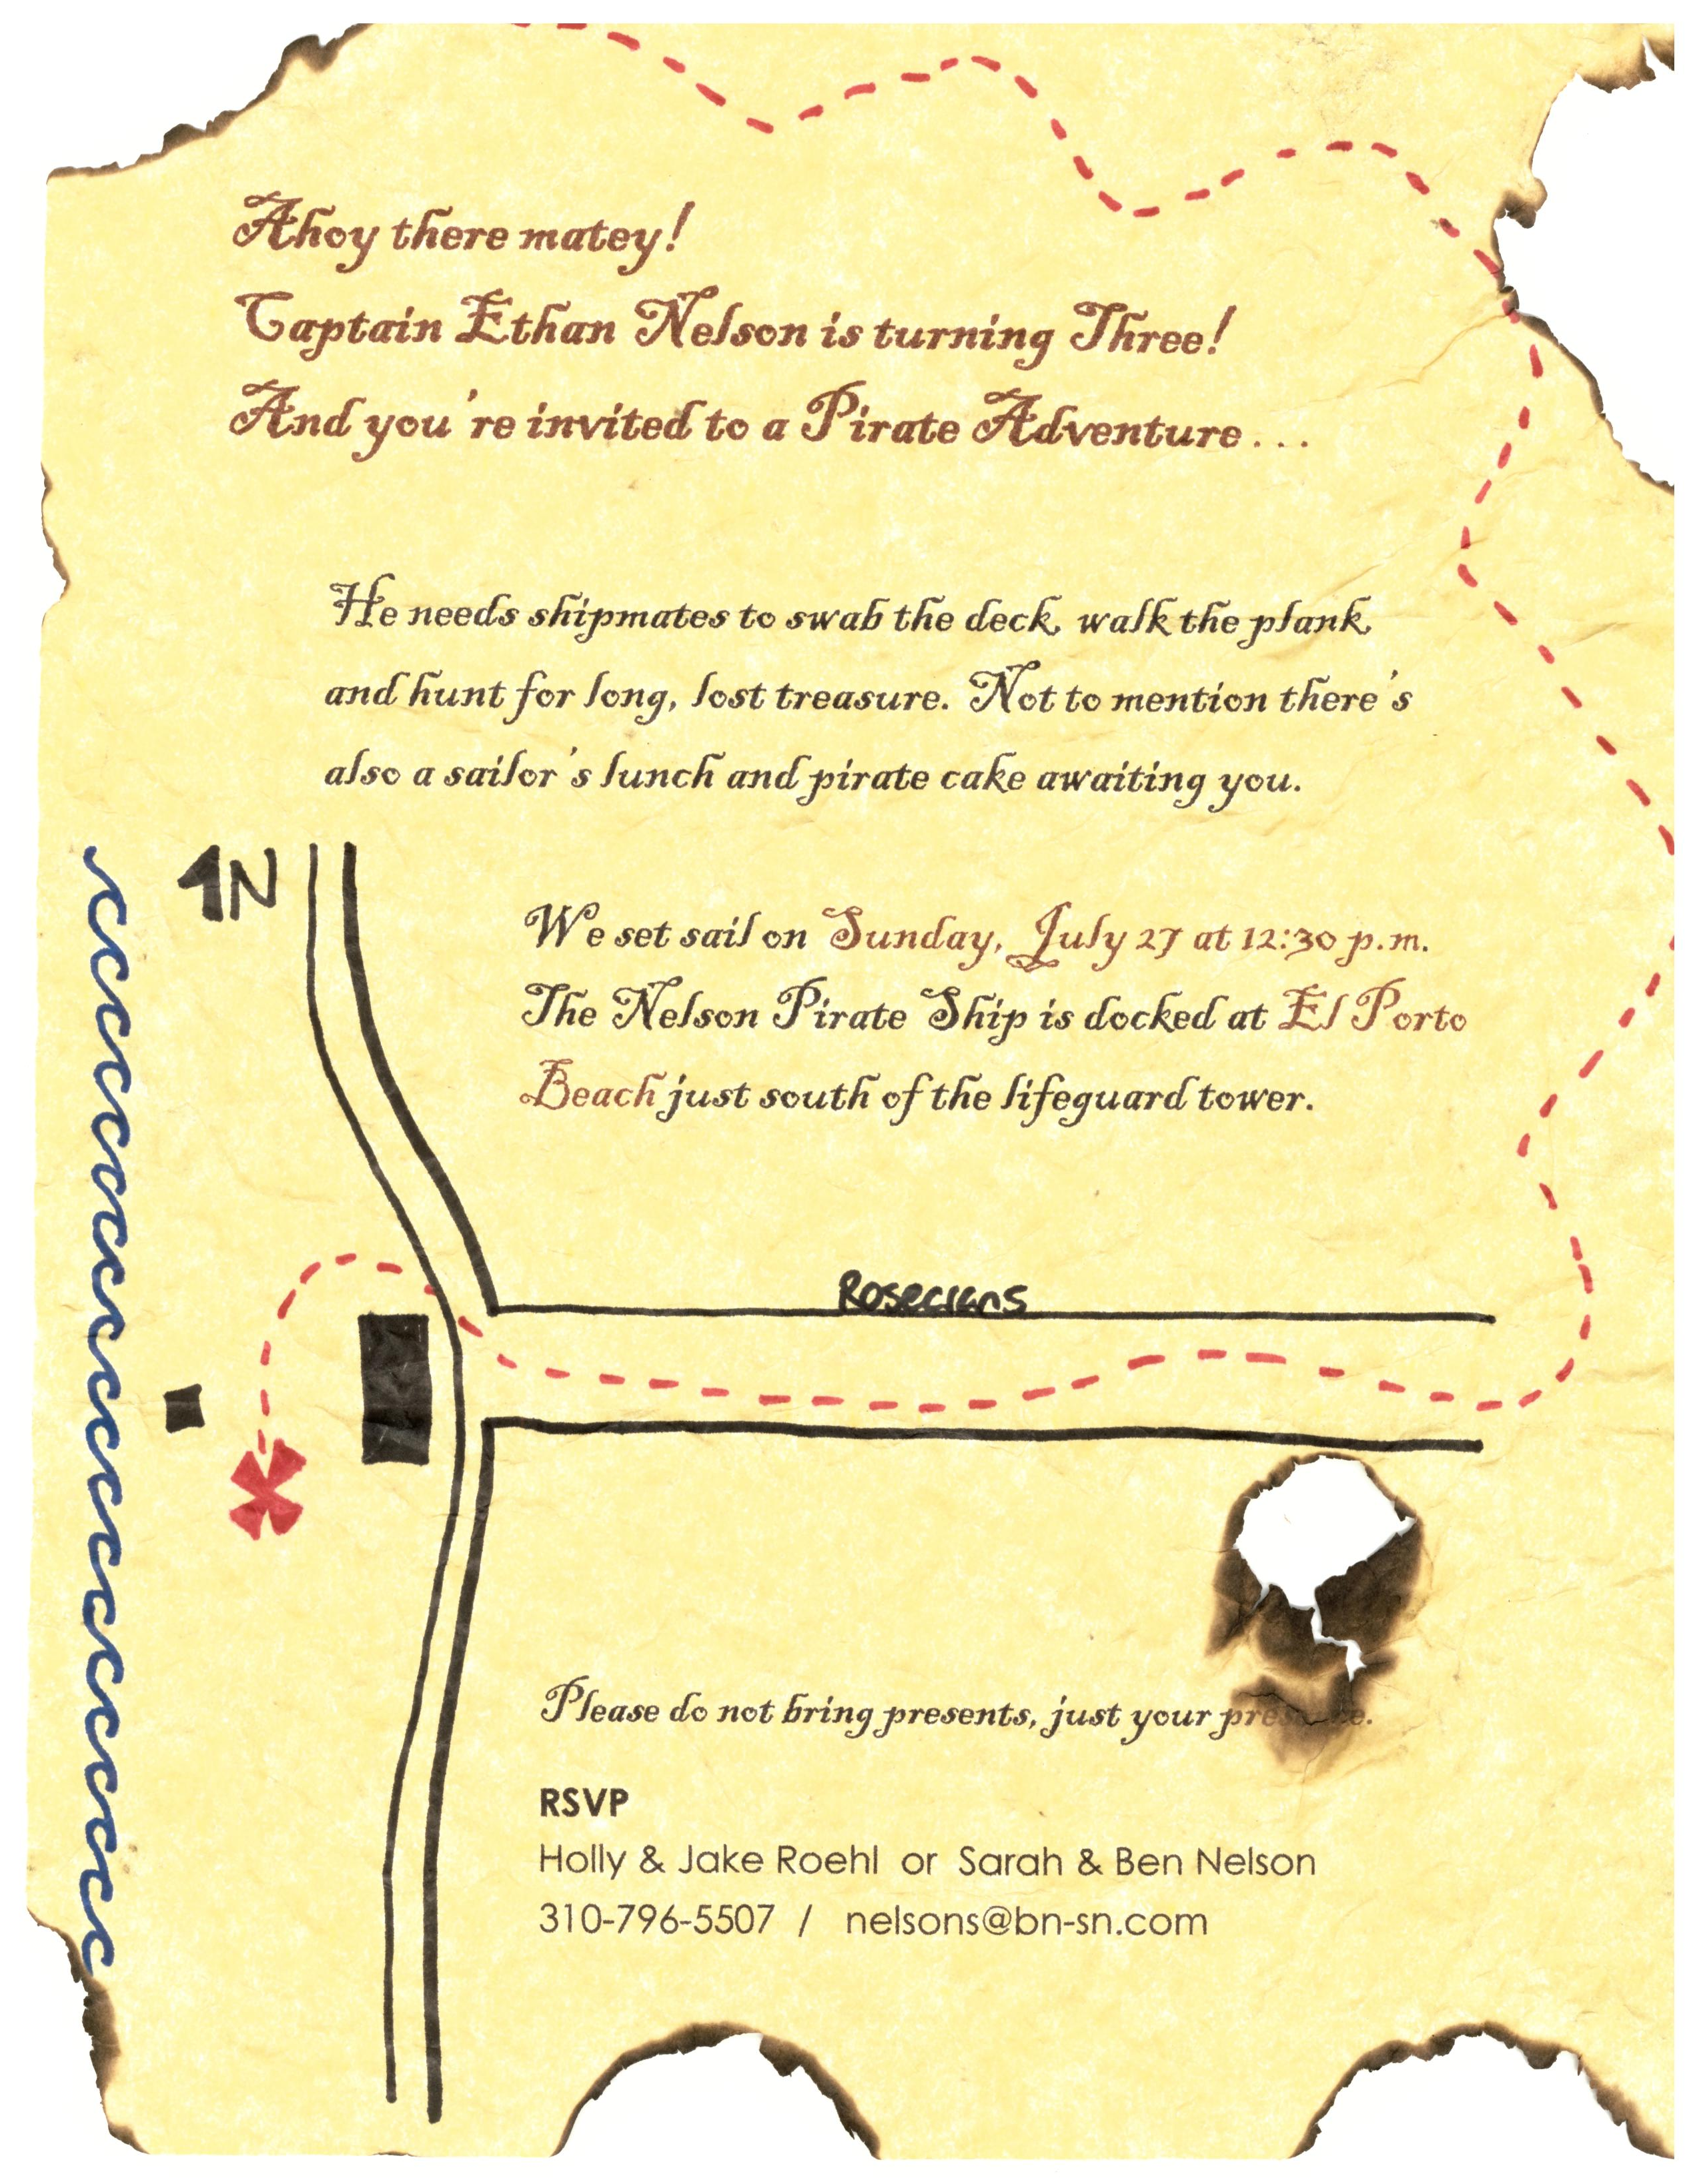 Ahoy there matey!
Captain Ethan Nelson is turning Three!
And you're invited to a Pirate Adventure...
He needs shipmates to swab the deck, walk the plank,
and hunt for long, lost treasure. Not to mention there's
also a sailor's lunch and pirate cake awaiting you.
N
We set sail on Sunday, July 27 at 12:30 p.m.
The Nelson Pirate Ship is docked at El Porto
Beach just south of the lifeguard tower.
Rosecrans
Please do not bring presents, just your presence.
RSVP
Holly & Jake Roehl or Sarah & Ben Nelson
310-796-5507 / nelsons@bn-sn.com